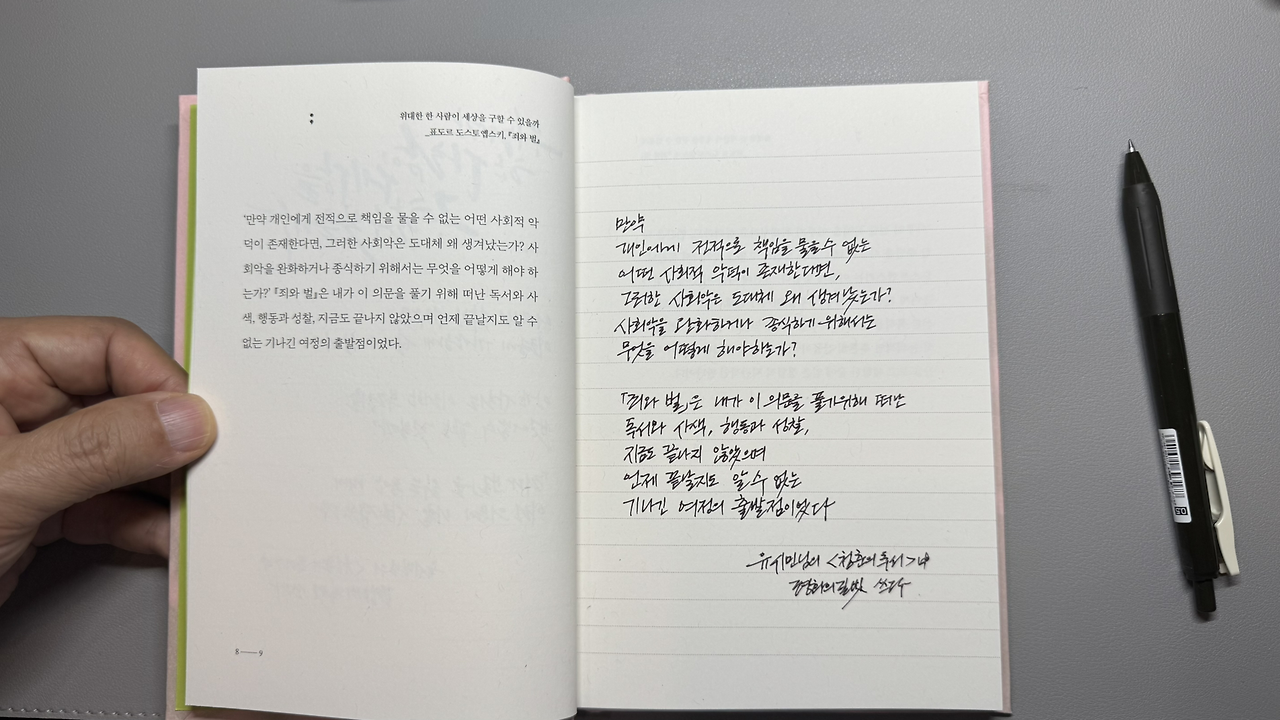 위대한 한 사람이 세상을 구할 수 있을까
_표도르 도스토옙스키, 『죄와 벌』
‘만약 개인에게 전적으로 책임을 물을 수 없는 어떤 사회적 악
덕이 존재한다면, 그러한 사회악은 도대체 왜 생겨났는가? 사
회악을 완화하거나 종식하기 위해서는 무엇을 어떻게 해야 하
는가?’ 『죄와 벌』은 내가 이 의문을 풀기 위해 떠난 독서와 사
색, 행동과 성찰, 지금도 끝나지 않았으며 언제 끝날지도 알 수
없는 기나긴 여정의 출발점이었다.
8 — 9
만약
개인에게 전적으로 책임을 물을 수 없는
어떤 사회적 악덕이 존재한다면,
그러한 사회악은 도대체 왜 생겨났는가?
사회악을 완화하거나 종식하기 위해서는
무엇을 어떻게 해야하는가?
『죄와 벌』은 내가 이 의문을 풀기위해 떠난
독서와 사색, 행동과 성찰,
지금도 끝나지 않았으며
언제 끝날지도 알 수 없는
기나긴 여정의 출발점이었다
유시민님의 <청춘의 독서>中
쓰다
0.5